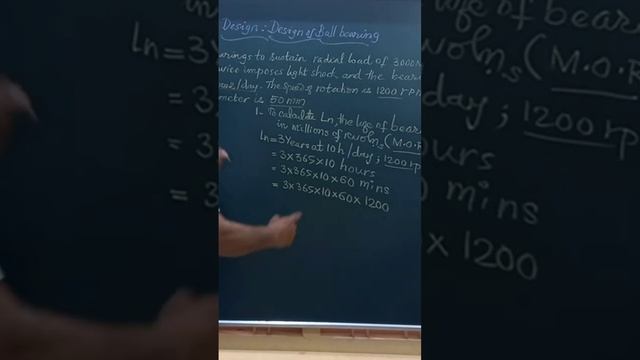 Design: Design of Ball bearing
rings to sustain radial load of 3000N
vice imposes light shock and the bear
/day. The speed of rotation is 1200 rpm
meter is 50 mm
1- To calculate Ln, the life of bear
in millions of revolns (M.O.R
Ln = 3 Years at 10h/day; 1200 rp
= 3x365x10 hours
= 3x365x10x60 mins
= 3x365x10x60x 1200